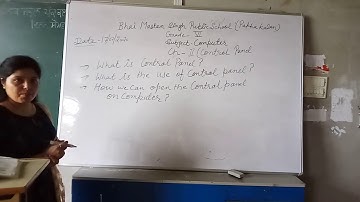 Bhai Mastan Singh Public School (Pakka Kalan)
Grade:- VI
Date:-
Subject:- Computer
Ch:- II (Control Panel
→ What Is Control Panel?
→ What Is the use of Control panel?
→ How we can open the Control panel
on Computer?